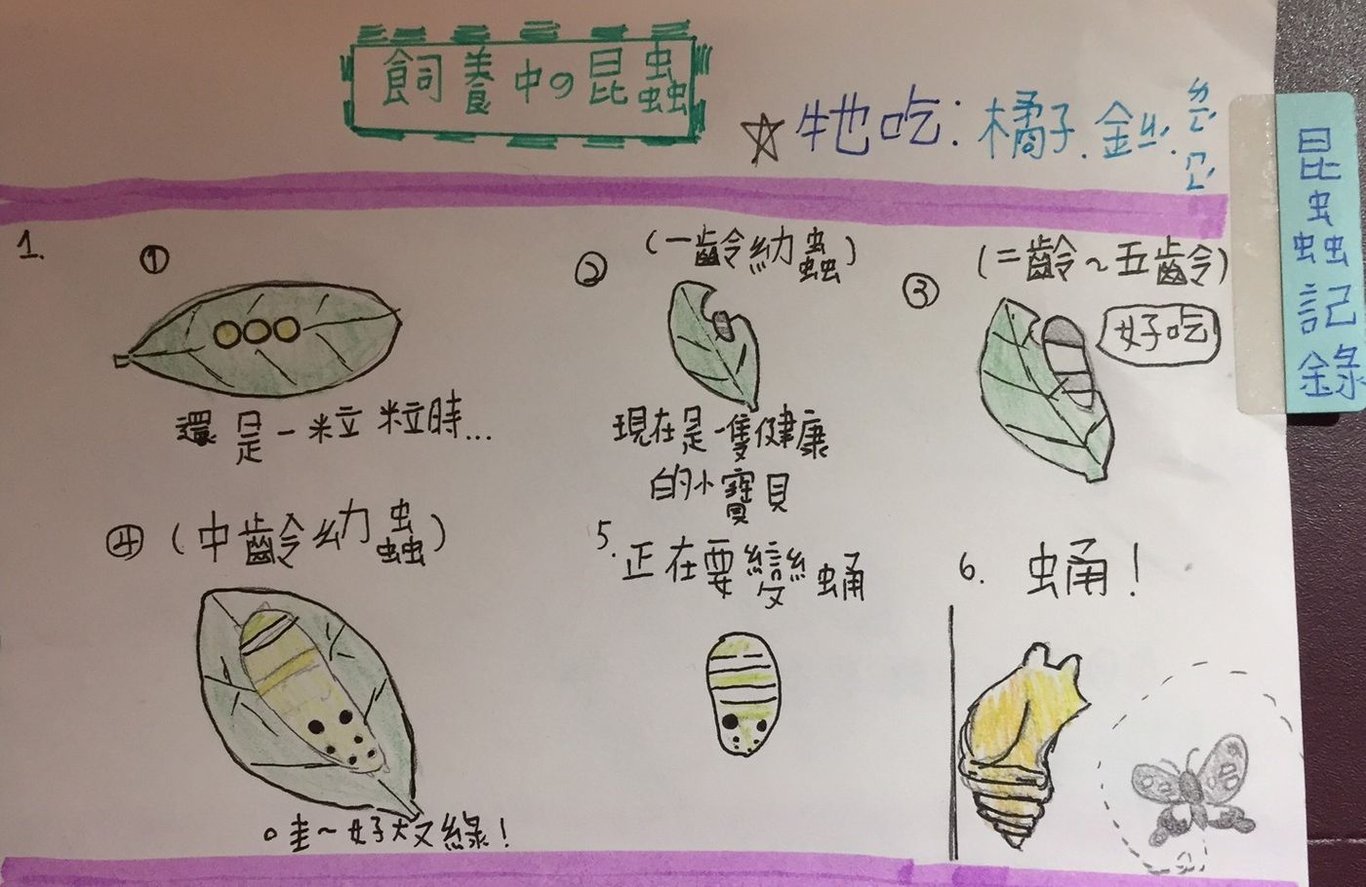 飼養中の昆蟲
☆牠吃:橘子.金
昆蟲記錄
1.
①
還是一粒粒時...
② (一齡幼蟲)
現在是一隻健康
的小寶貝
③ (二齡~五齡)
好吃
④ (中齡幼蟲)
哇~好大又綠!
5. 正在要變蛹
6. 蛹!